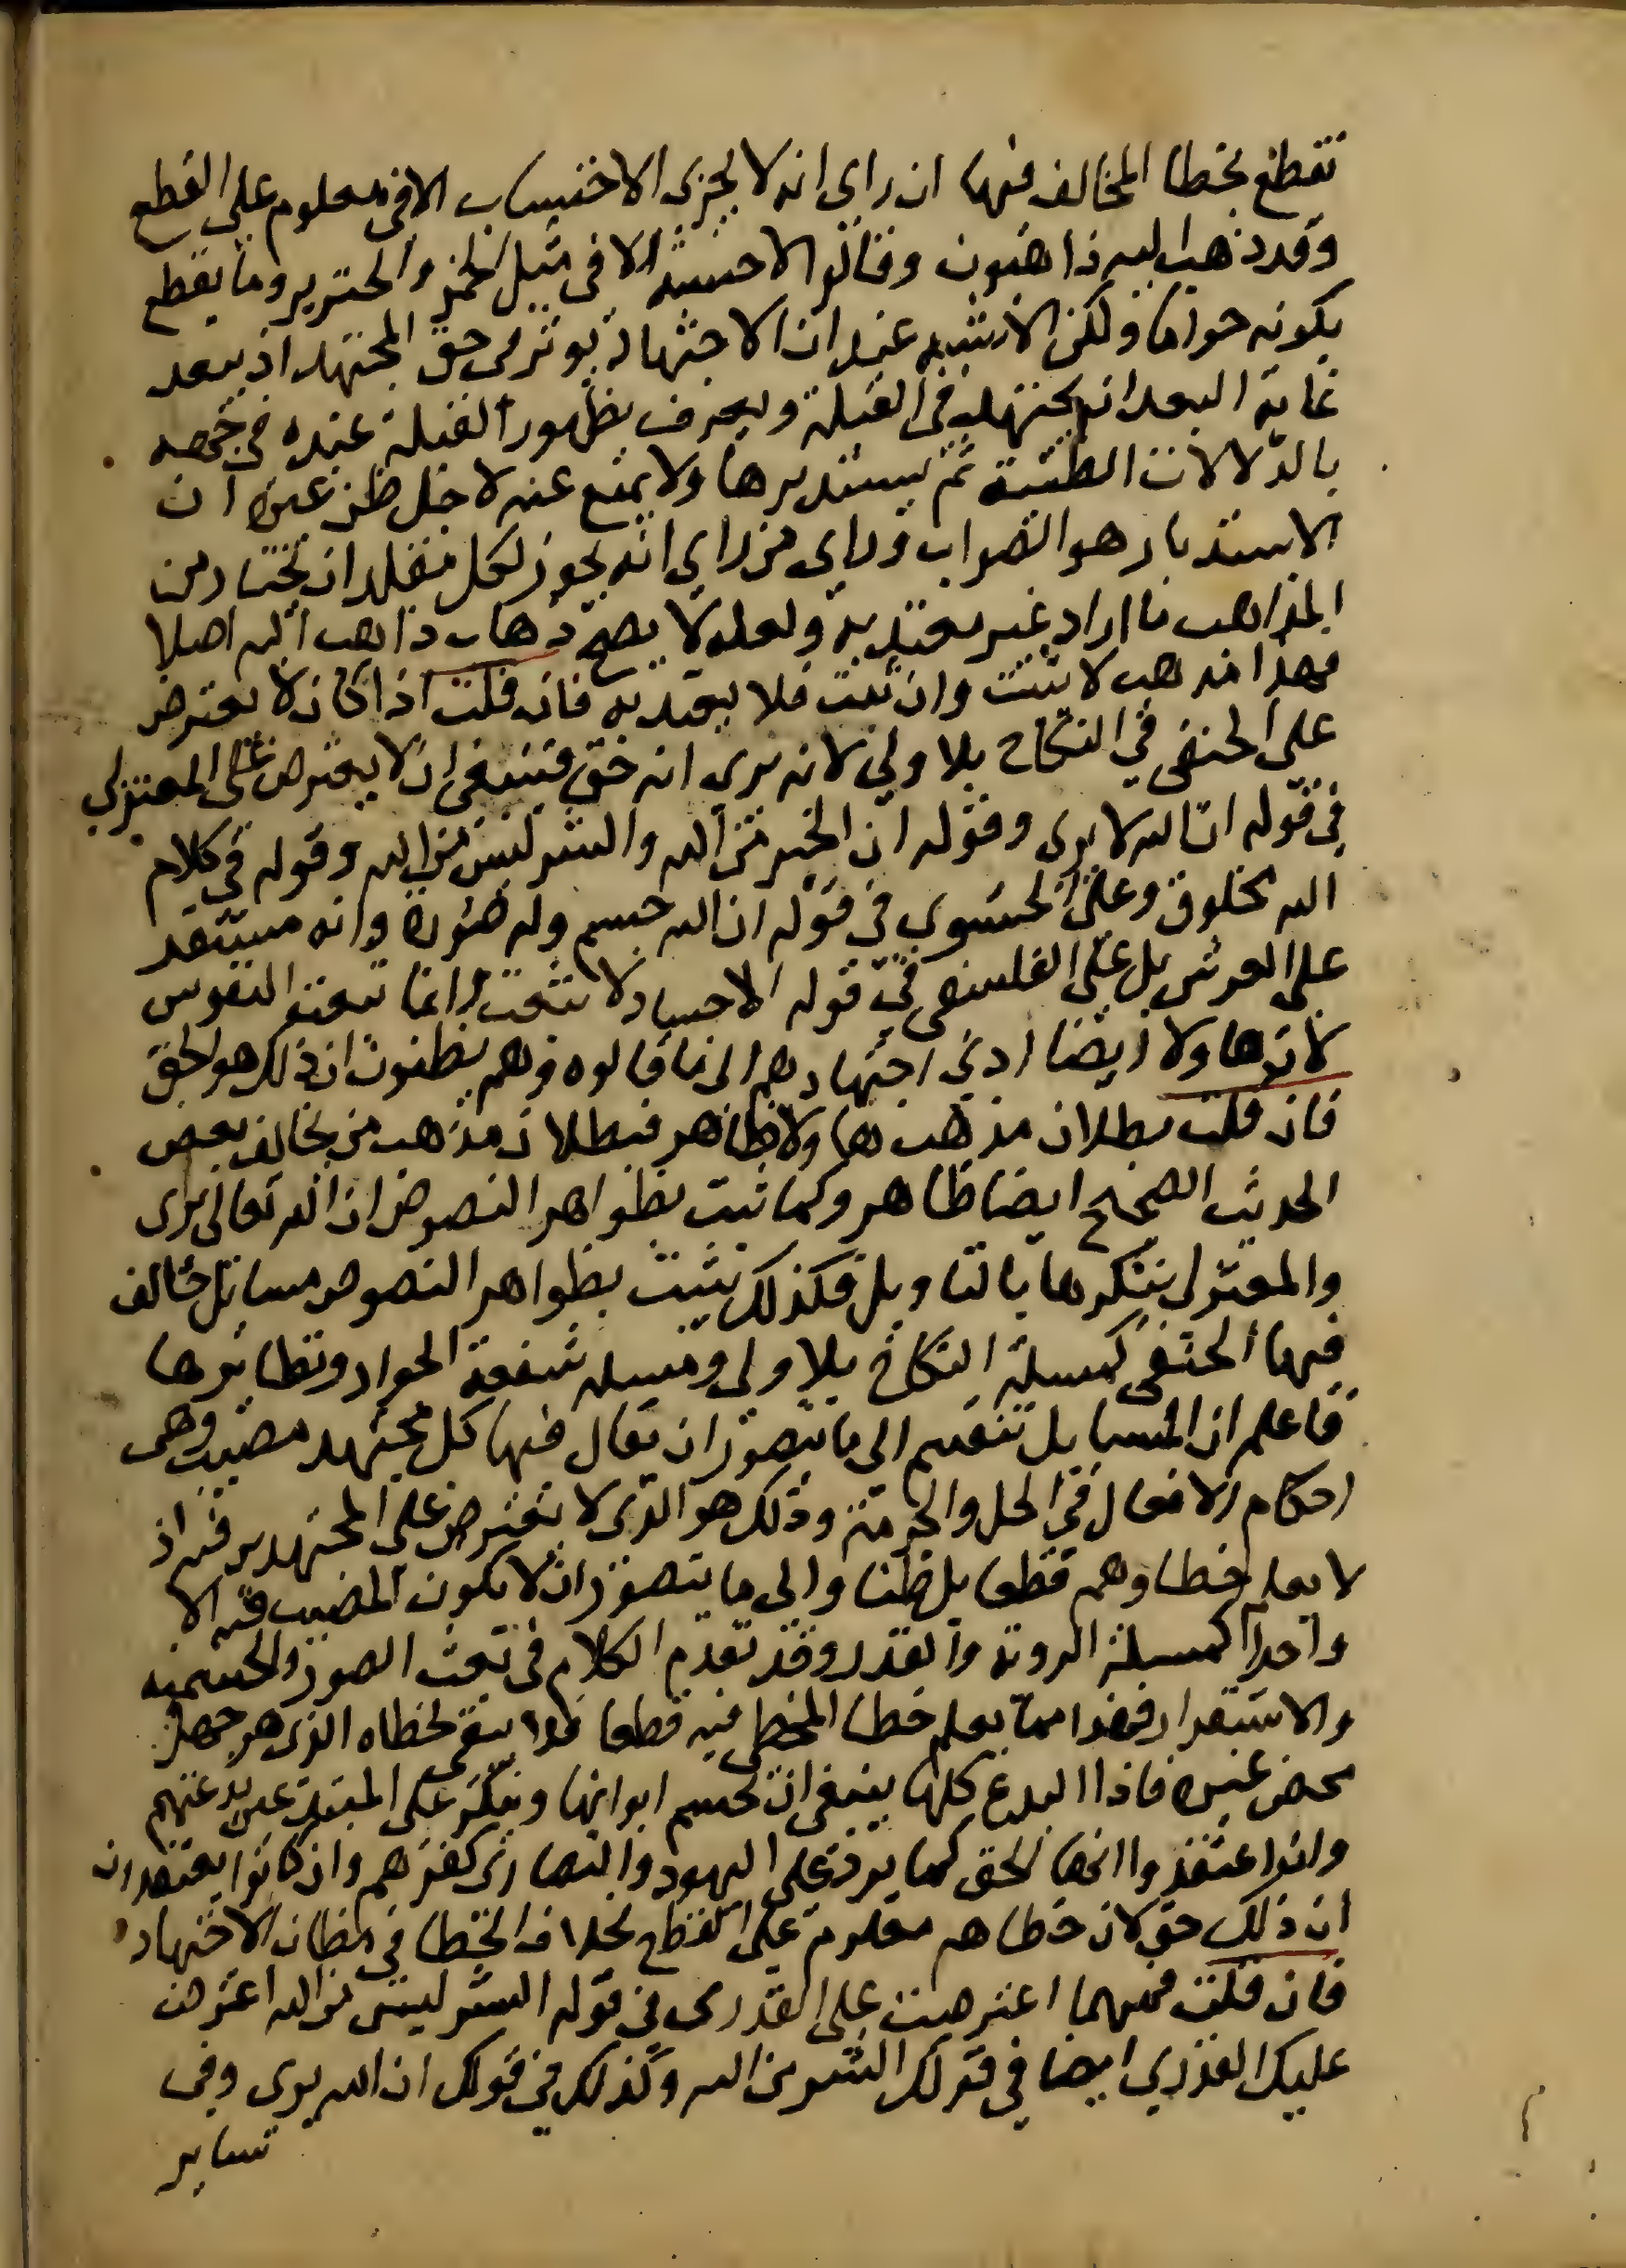 نقطع بخطا المخالف فيها ان راى انه لا يجزى الاحتساب الا فى معلوم على القطع
وقد ذهب اليه ذاهبون وقالوا لا حسبة الا فى مثل الخمر والخنزير وما يقطع
بكونه حراما ولكن الاشبه عندنا ان الاجتهاد يوثر فى حق المجتهد اذ يبعد
غاية البعد ان يجتهد فى القبلة ويعرف بظهور القبلة عنده فى جهة
بالدلالات الظنية ثم يستدبرها ولا يمنع عنه لاجل ظن غيره ان
الاستدبار هو الصواب وراى من راى انه يجوز لكل مقلد ان يختار من
المذاهب ما اراد غير معتد به ولعله لا يصح ذهاب ذاهب اليه اصلا
فهذا مذهب لا يثبت وان ثبت فلا يعتد به فان قلت اذا كان لا يعترض
على الحنفى في النكاح بلا ولى لانه يرى انه حق فينبغى ان لا يعترض على المعتزلي
فى قوله ان الله لا يرى وقوله ان الخير من الله والشر ليس من الله وقوله فى كلام
الله مخلوق وعلى الحشوي فى قوله ان الله جسم وله صورة وانه مستقر
على العرش بل على الفلسفى فى قوله الاجساد لا تبعث وانما تبعث النفوس
لان هاولا ايضا ادى اجتهادهم الى ما قالوه وهم يظنون ان ذلك هو الحق
فان قلت بطلان مذهب هاولا ظاهر فبطلان مذهب من يخالف بعض
الحديث الصحيح ايضا ظاهر وكما ثبت بظواهر النصوص ان الله تعالى يرى
والمعتزلى ينكرها بالتاويل فكذلك يثبت بظواهر النصوص مسائل خالف
فيها الحنفى كمسلة النكاح بلا ولى ومسله شفعة الجوار ونظائرها
فاعلم ان المسايل تنقسم الى ما يتصور ان يقال فيها كل مجتهد مصيب وهى
احكام الافعال فى الحل والحرمة وذلك هو الذى لا يعترض على المجتهدين فيه اذ
لا يعلم خطاوهم قطعا بل ظنا والى ما يتصور ان لا يكون المصيب فيه الا
واحدا كمسلة الروية والقدر وقد تقدم الكلام فى نعت الصور والجسمية
والاستقرار فهذا مما يعلم خطا المخطى فيه قطعا فلا يبقى لخطاه الذى هو جهل
محض غيره فاذا البدع كلها ينبغى ان تحسم ابوابها وينكر على المبتدعين بدعتهم
وان اعتقدوا انها الحق كما يرد على اليهود والنصارى كفرهم وان كانوا يعتقدون
ان ذلك حق لان خطاهم معلوم على القطع بخلاف الخطا فى مظان الاجتهاد
فان قلت فمهما اعترضت على القدرى فى قوله الشر ليس من الله اعترض
عليك القدري ايضا في قولك الشر من الله وكذلك فى قولك ان الله يرى وفى
ساير